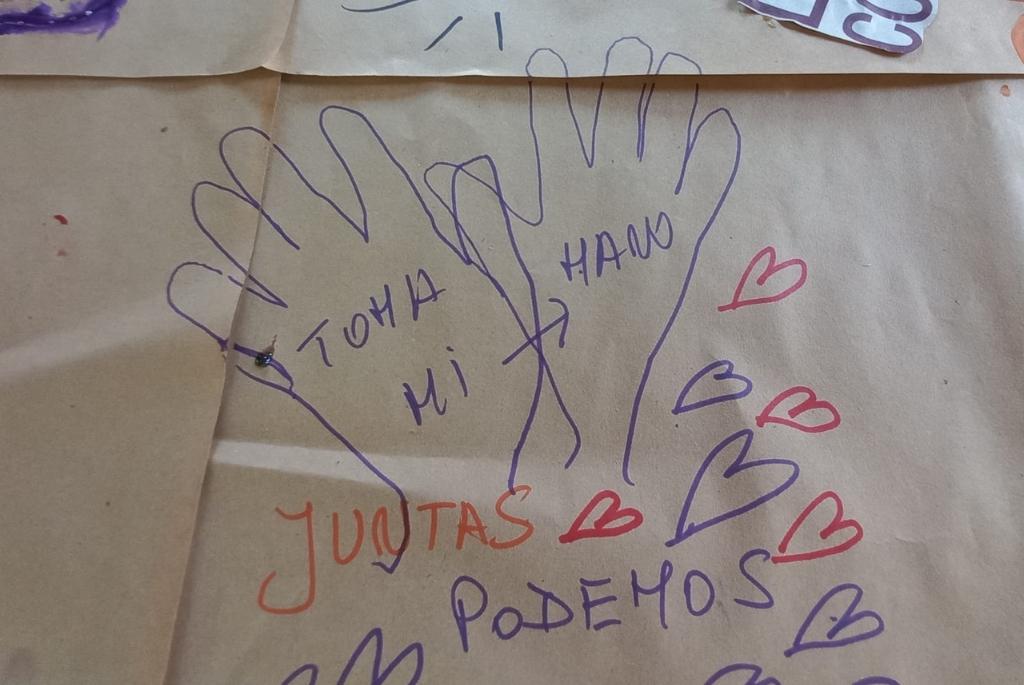 TOMA
MI → MANO
JUNTAS
PODEMOS
CO